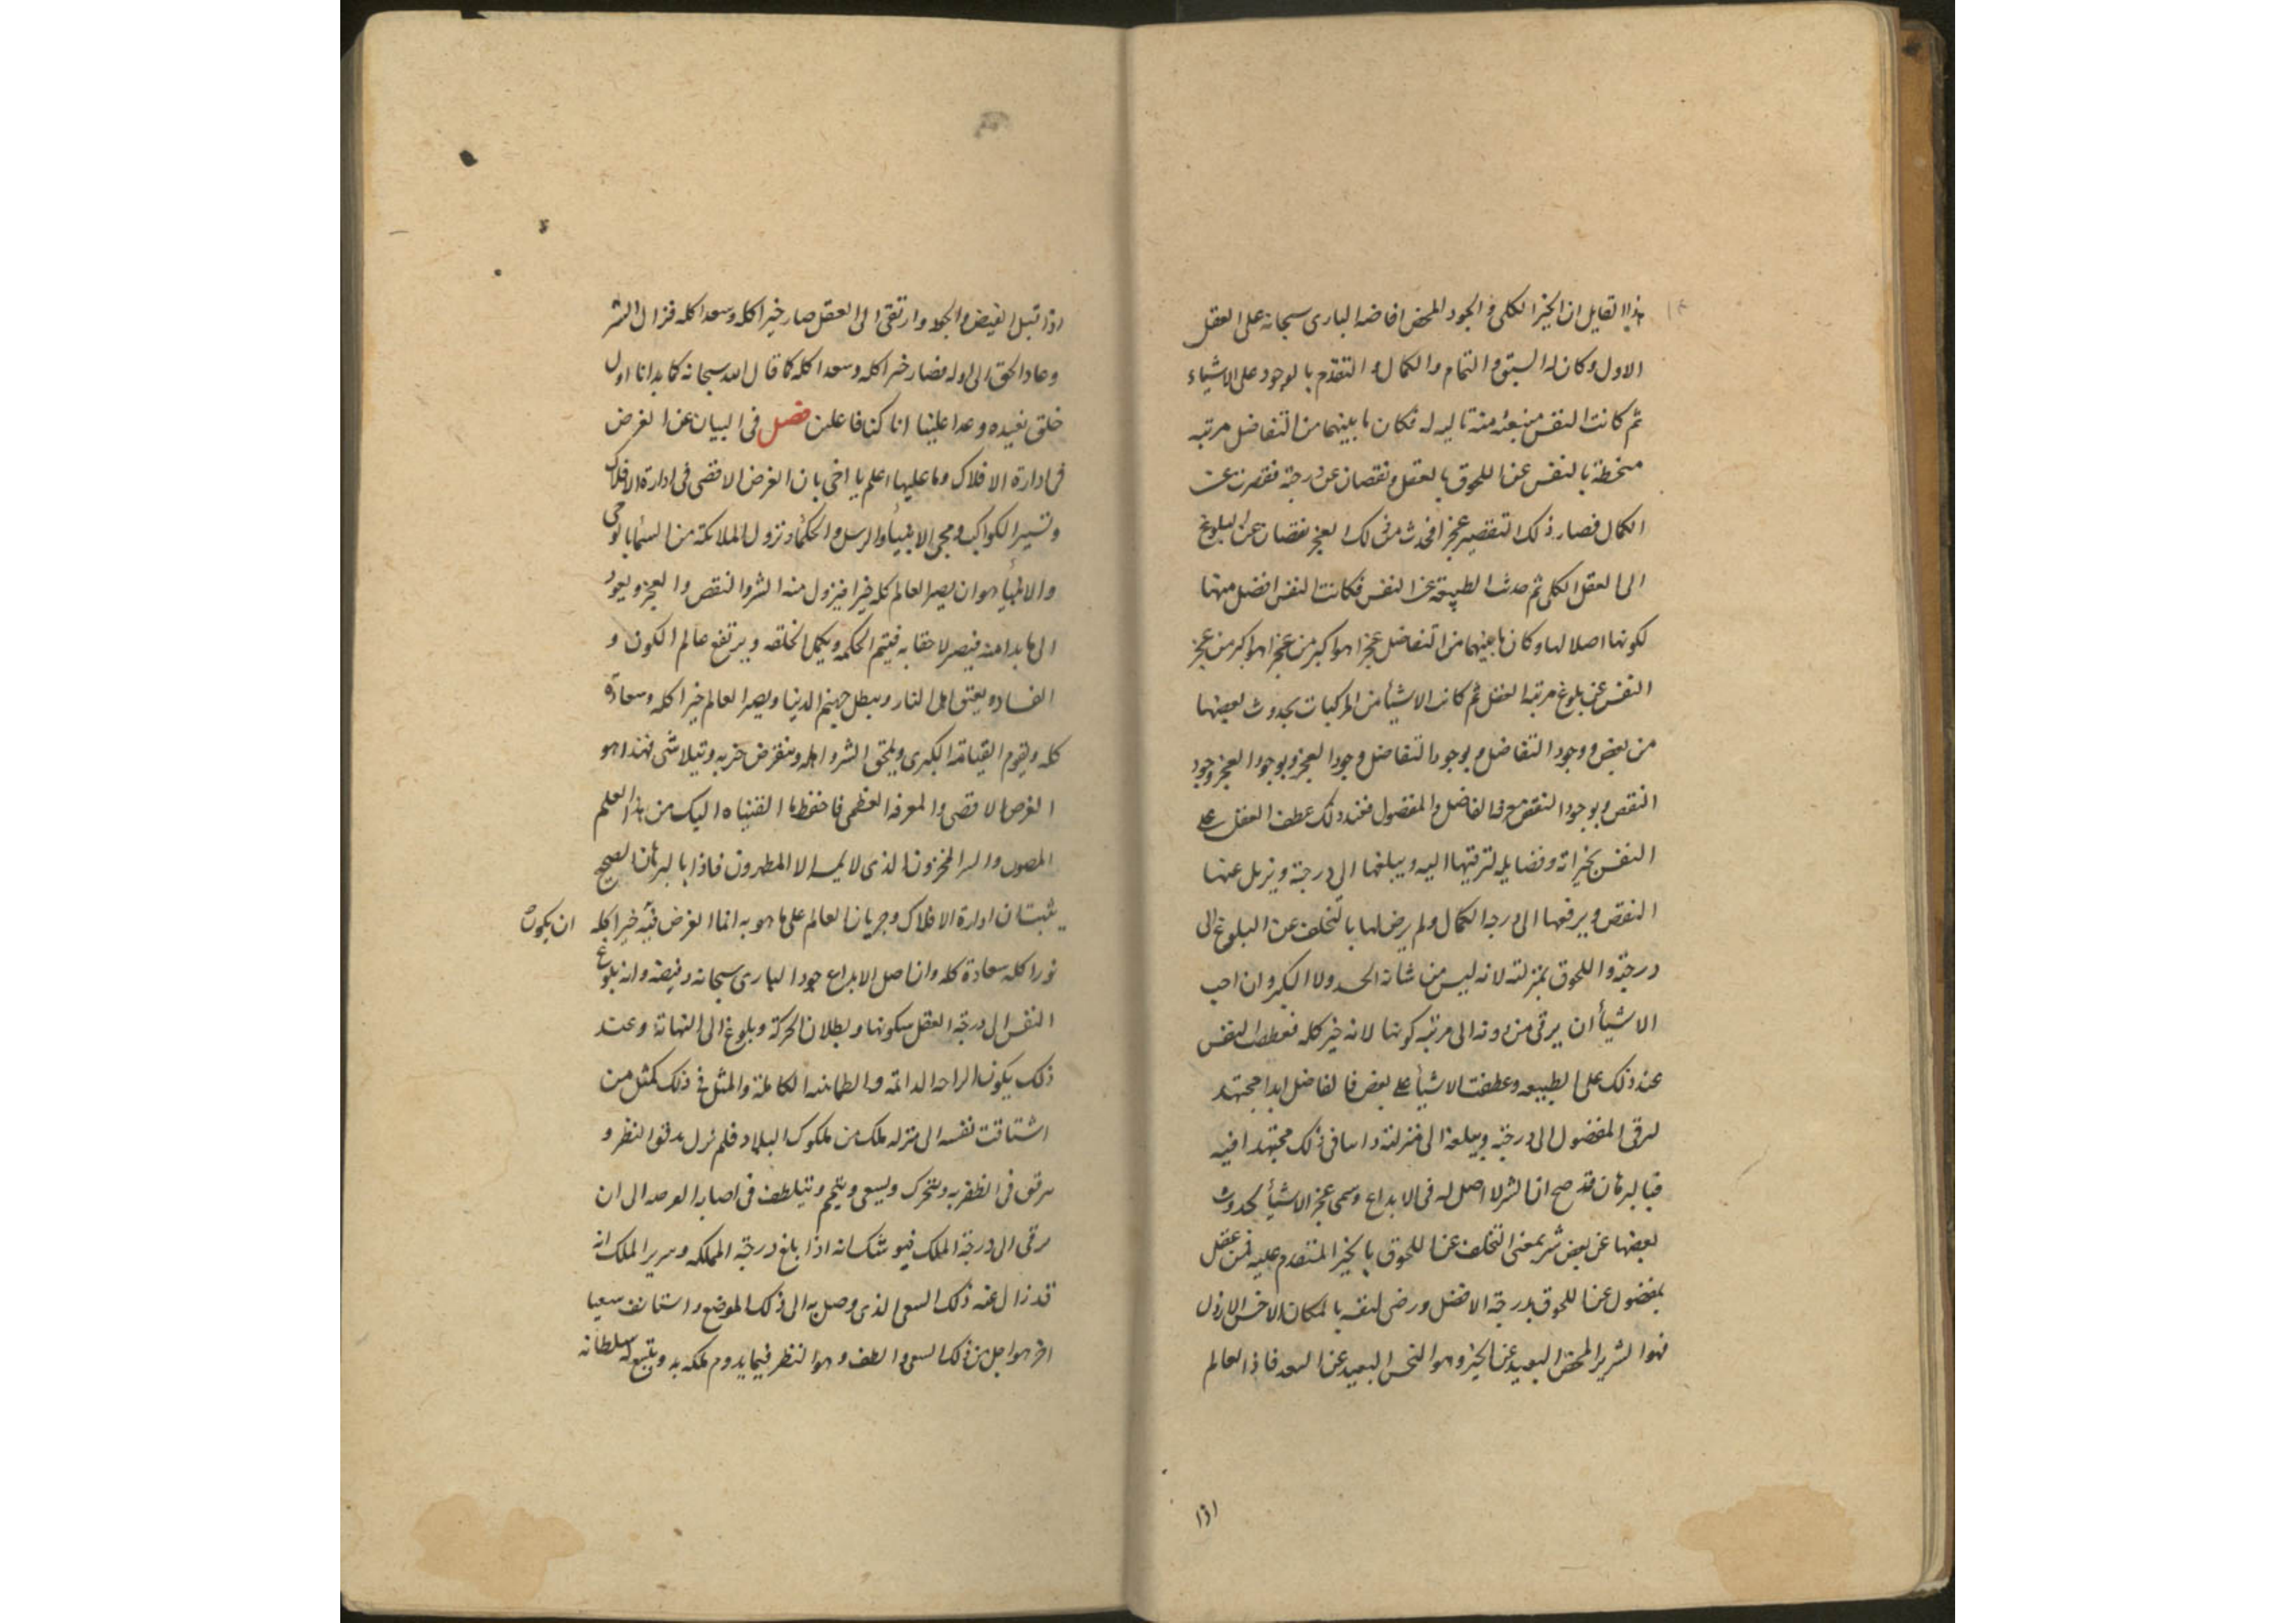 هذا القايل ان الخير الكلى والجود المحض افاضه البارى سبحانه على العقل
الاول وكان له السبق والتمام والكمال و التقدم بالوجود على الاشياء
ثم كانت النفس منبعثه منه تاليه له فكان ما بينهما من التفاضل مرتبه
منحطة بالنفس عن اللحوق بالعقل ونقصان عن درجته فقصرت عن
الكمال فصار ذلك التقصير عجزا فحدث من ذلك العجز نقصان عن البلوغ
الى العقل الكلى ثم حدثت الطبيعة عن النفس فكانت النفس افضل منها
لكونها اصلا لها وكان ما بينهما من التفاضل عجزا هو اكبر من عجزا هو اكبر من عجز
النفس عن بلوغ مرتبه العقل ثم كانت الاشيأ من المركبات بحدوث بعضها
من بعض ووجود التفاضل و بوجود التفاضل وجود العجز و بوجود العجز وجود
النقص وبوجود النقص مع فى الفاضل والمفضول فعند ذلك عطف العقل على
النفس بخيراته وفضايله لترقيتها اليه ويبلغها الى درجته ويزيل عنها
النقص ويرفعها الى درجه الكمال ولم يرض لها بالتخلف عن البلوغ الى
درجته واللحوق بمنزلته لانه ليس من شأنه الحسد ولا الكبر وان احب
الاشيأ ان يرقى من دونه الى مرتبه كونها لانه خير كله فعطفت النفس
عند ذلك على الطبيعه وعطفت الاشيأ على بعض فالفاضل ابدا مجتهد
لرقى المفضول الى درجته ويبلغه الى منزلته دايما فى ذلك مجتهدا فيه
فبالبرهان قد صح ان الشر لا اصل له فى الابداع وسمى عجز الاشيأ لحدوث
بعضها عن بعض شر بمعنى التخلف عن اللحوق بالخير المتقدم عليه فمن عقل
بمفضول عن اللحوق بدرجة الافضل ورضى لنفسه بالمكان الاخس الارذل
فهو الشرير المحض البعيد عن الخير وهو النحس البعيد عن السعد فاذا العالم
اذا
اذا قبل الفيض والجود وارتقى الى العقل صار خيرا كله وسعدا كله فزال الشر
وعاد الحق الى اوله فصار خيرا كله وسعدا كله كما قال الله سبحانه كما بدانا اول
خلق نعيده وعدا علينا انا كنا فاعلين فصل فى البيان عن الغرض
فى ادارة الافلاك وما عليها اعلم يا اخى بان الغرض الاقصى فى ادارة الافلاك
وتسيير الكواكب ومجى الانبيأ والرسل والحكمأ ونزول الملائكة من السمأ بالوحى
والانبيأ هو ان يصير العالم كله خيرا فيزول منه الشر والنقص والعجز ويعود
الى ما بدا منه فيصير لاحقا به فيتم الحكمه ويكمل الخلقه ويرتفع عالم الكون و
الفساد ويعتق اهل النار ويبطل جهنم الدنيا ويصير العالم خيرا كله وسعادة
كله وتقوم القيامة الكبرى ويمحق الشر واهله وينقرض حزبه ويتلاشى فهذا هو
الغرض الاقصى والمعرفه العظمى فاحفظ ما القيناه اليك من هذا العلم
المصون والسر المخزون الذى لا يمسه الا المطهرون فاذا بالبرهان الصحيح
يثبت ان ادارة الافلاك وجريان العالم على ما هو به انما الغرض فيه خيرا كله ان يكون
نورا كله سعادة كله وان اصل الابداع جود البارى سبحانه وفيضه وانه بلوغ
النفس الى درجة العقل سكونها وبطلان الحركة وبلوغ الى النهاية وعند
ذلك يكون الراحه الدائمه والطمانينه الكاملة والمثل فى ذلك كمثل من
اشتاقت نفسه الى منزله ملك من ملوك البلاد فلم يزل يدقق النظر و
يرتق فى الظفر به ويتحرك ويسعى ويتلطف فى اصابه الفرصه الى ان
يرقى الى درجة الملك فيوشك انه اذا بلغ درجة المملكه وسرير الملك انه
قد زال عنه ذلك السعى الذى وصل به الى ذلك الموضع واستانف سعيا
اخر هو اجل من ذلك السعى والطف وهو النظر فيما يدوم ملكه به ويتبع له سلطانه